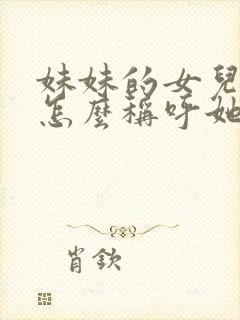 妹妹的女兒
怎麼稱呼她
肖欽